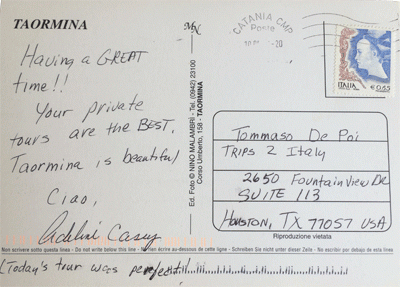 TAORMINA
Having a GREAT
time!!
Your private
tours are the BEST.
Taormina is beautiful
Ciao,
Adeline Casey
Non scrivere sotto questa linea - Do not write below this line - Ne rien écrire au-dessous de cette ligne - Schreiben Sie nicht unter dieser Zeile - No escribir por debajo de esta linea
(Today's tour was perfect!)
Ed. Foto © NINO MALAMBRI - Tel. (0942) 23100
Corso Umberto, 158 - TAORMINA
CATANIA CMP
Poste
-20
ITALIA
€ 0,65
Tommaso De Poi
TRIPS 2 Italy
2650 Fountain View Dr
SUITE 113
Houston, TX 77057 USA
Riproduzione vietata